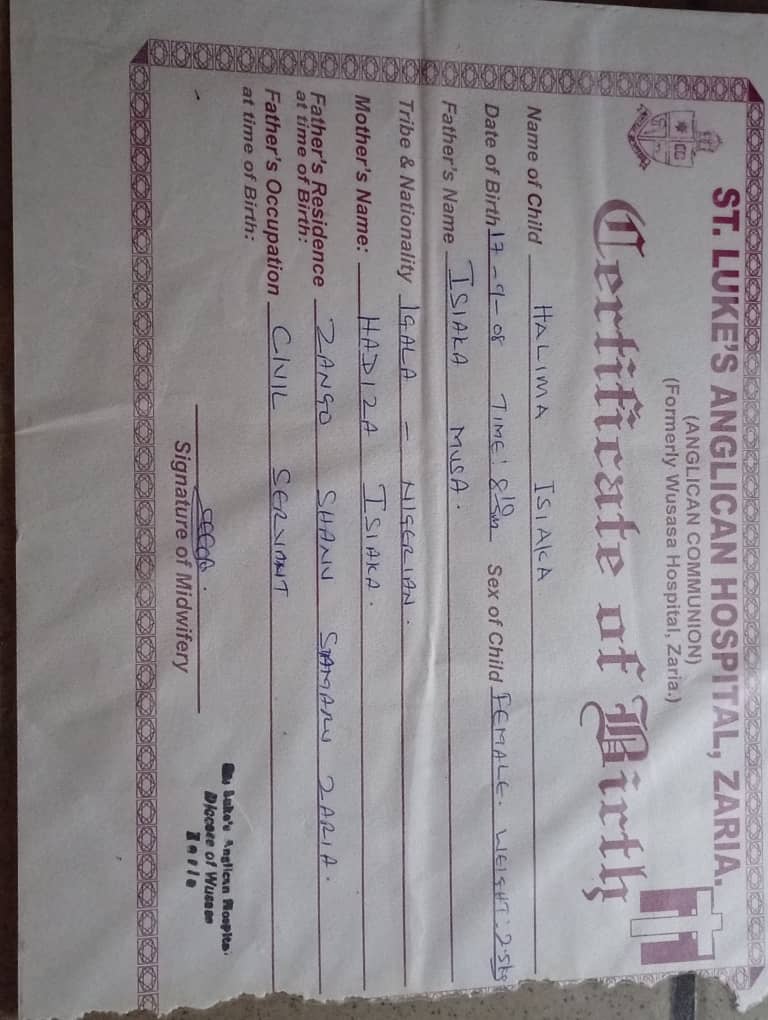 ST. LUKE'S ANGLICAN HOSPITAL, ZARIA.
(ANGLICAN COMMUNION)
(Formerly Wusasa Hospital, Zaria.)
Certificate of Birth
Name of Child HALIMA ISIAKA
Date of Birth 17-9-08 TIME: 8 10 Sex of Child FEMALE. WEIGHT: 2.5kg
Father's Name ISIAKA MUSA.
Tribe & Nationality IGALA - NIGERIAN.
Mother's Name: HADIZA ISIAKA.
Father's Residence ZANGO SHANU SAMARU ZARIA.
at time of Birth:
Father's Occupation CIVIL SERVANT
at time of Birth:
Signature of Midwifery
Luke's Anglican Hospital
Diocese of Wusasa
Zaria